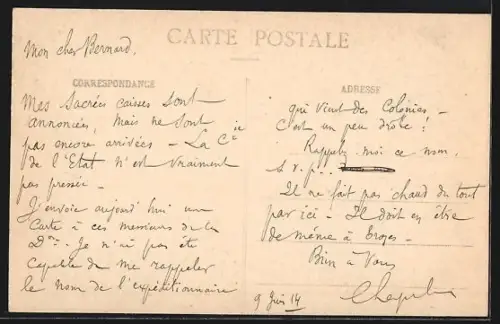 CARTE POSTALE
Mon cher Bernard,
CORRESPONDANCE
Mes Sacrées caisses sont
annoncées, mais ne sont
pas encore arrivées - La Cie
de l'Etat n'est vraiment
pas pressée -
J'envoie aujourd'hui un
Carte à ces messieurs de la
Don. Je n'ai pas été
capable de me rappeler
le nom de l'expéditionnaire
ADRESSE
qui vient des Colonies -
C'est un peu drôle !
Rappelez moi ce nom.
s.v.p..
Il ne fait pas chaud du tout
par ici - Il doit en être
de même à Troyes -
Bien à Vous
9 Juin 14